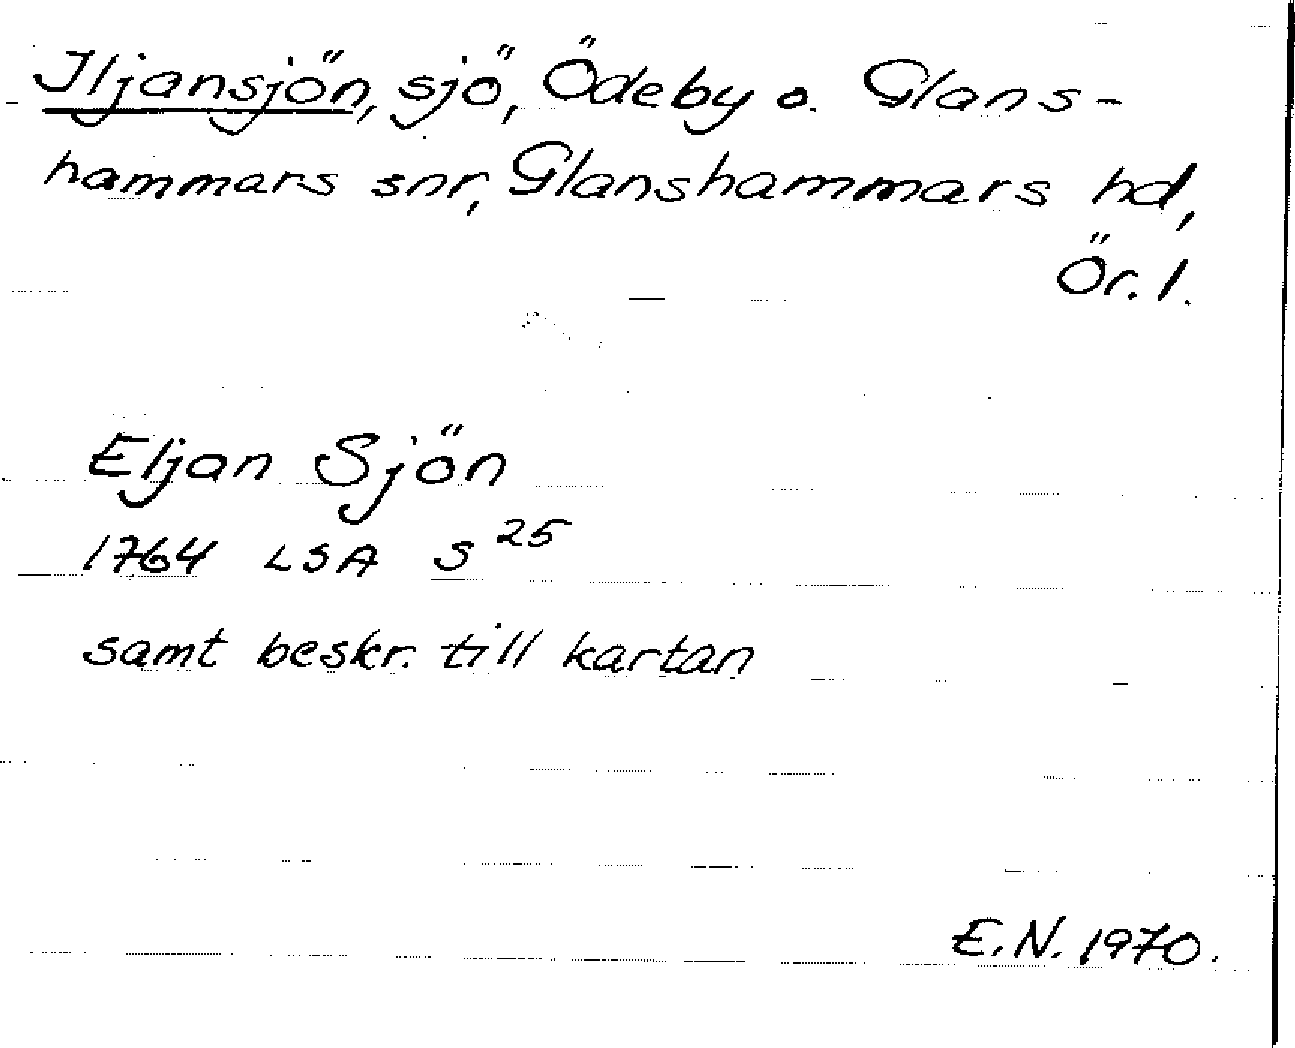 Iljansjön, sjö, Ödeby o. Glans-
hammars snr, Glanshammars hd,
Ör. l.
Eljan Sjön
1764 LSA S 25
samt beskr. till kartan
E.N. 1970.